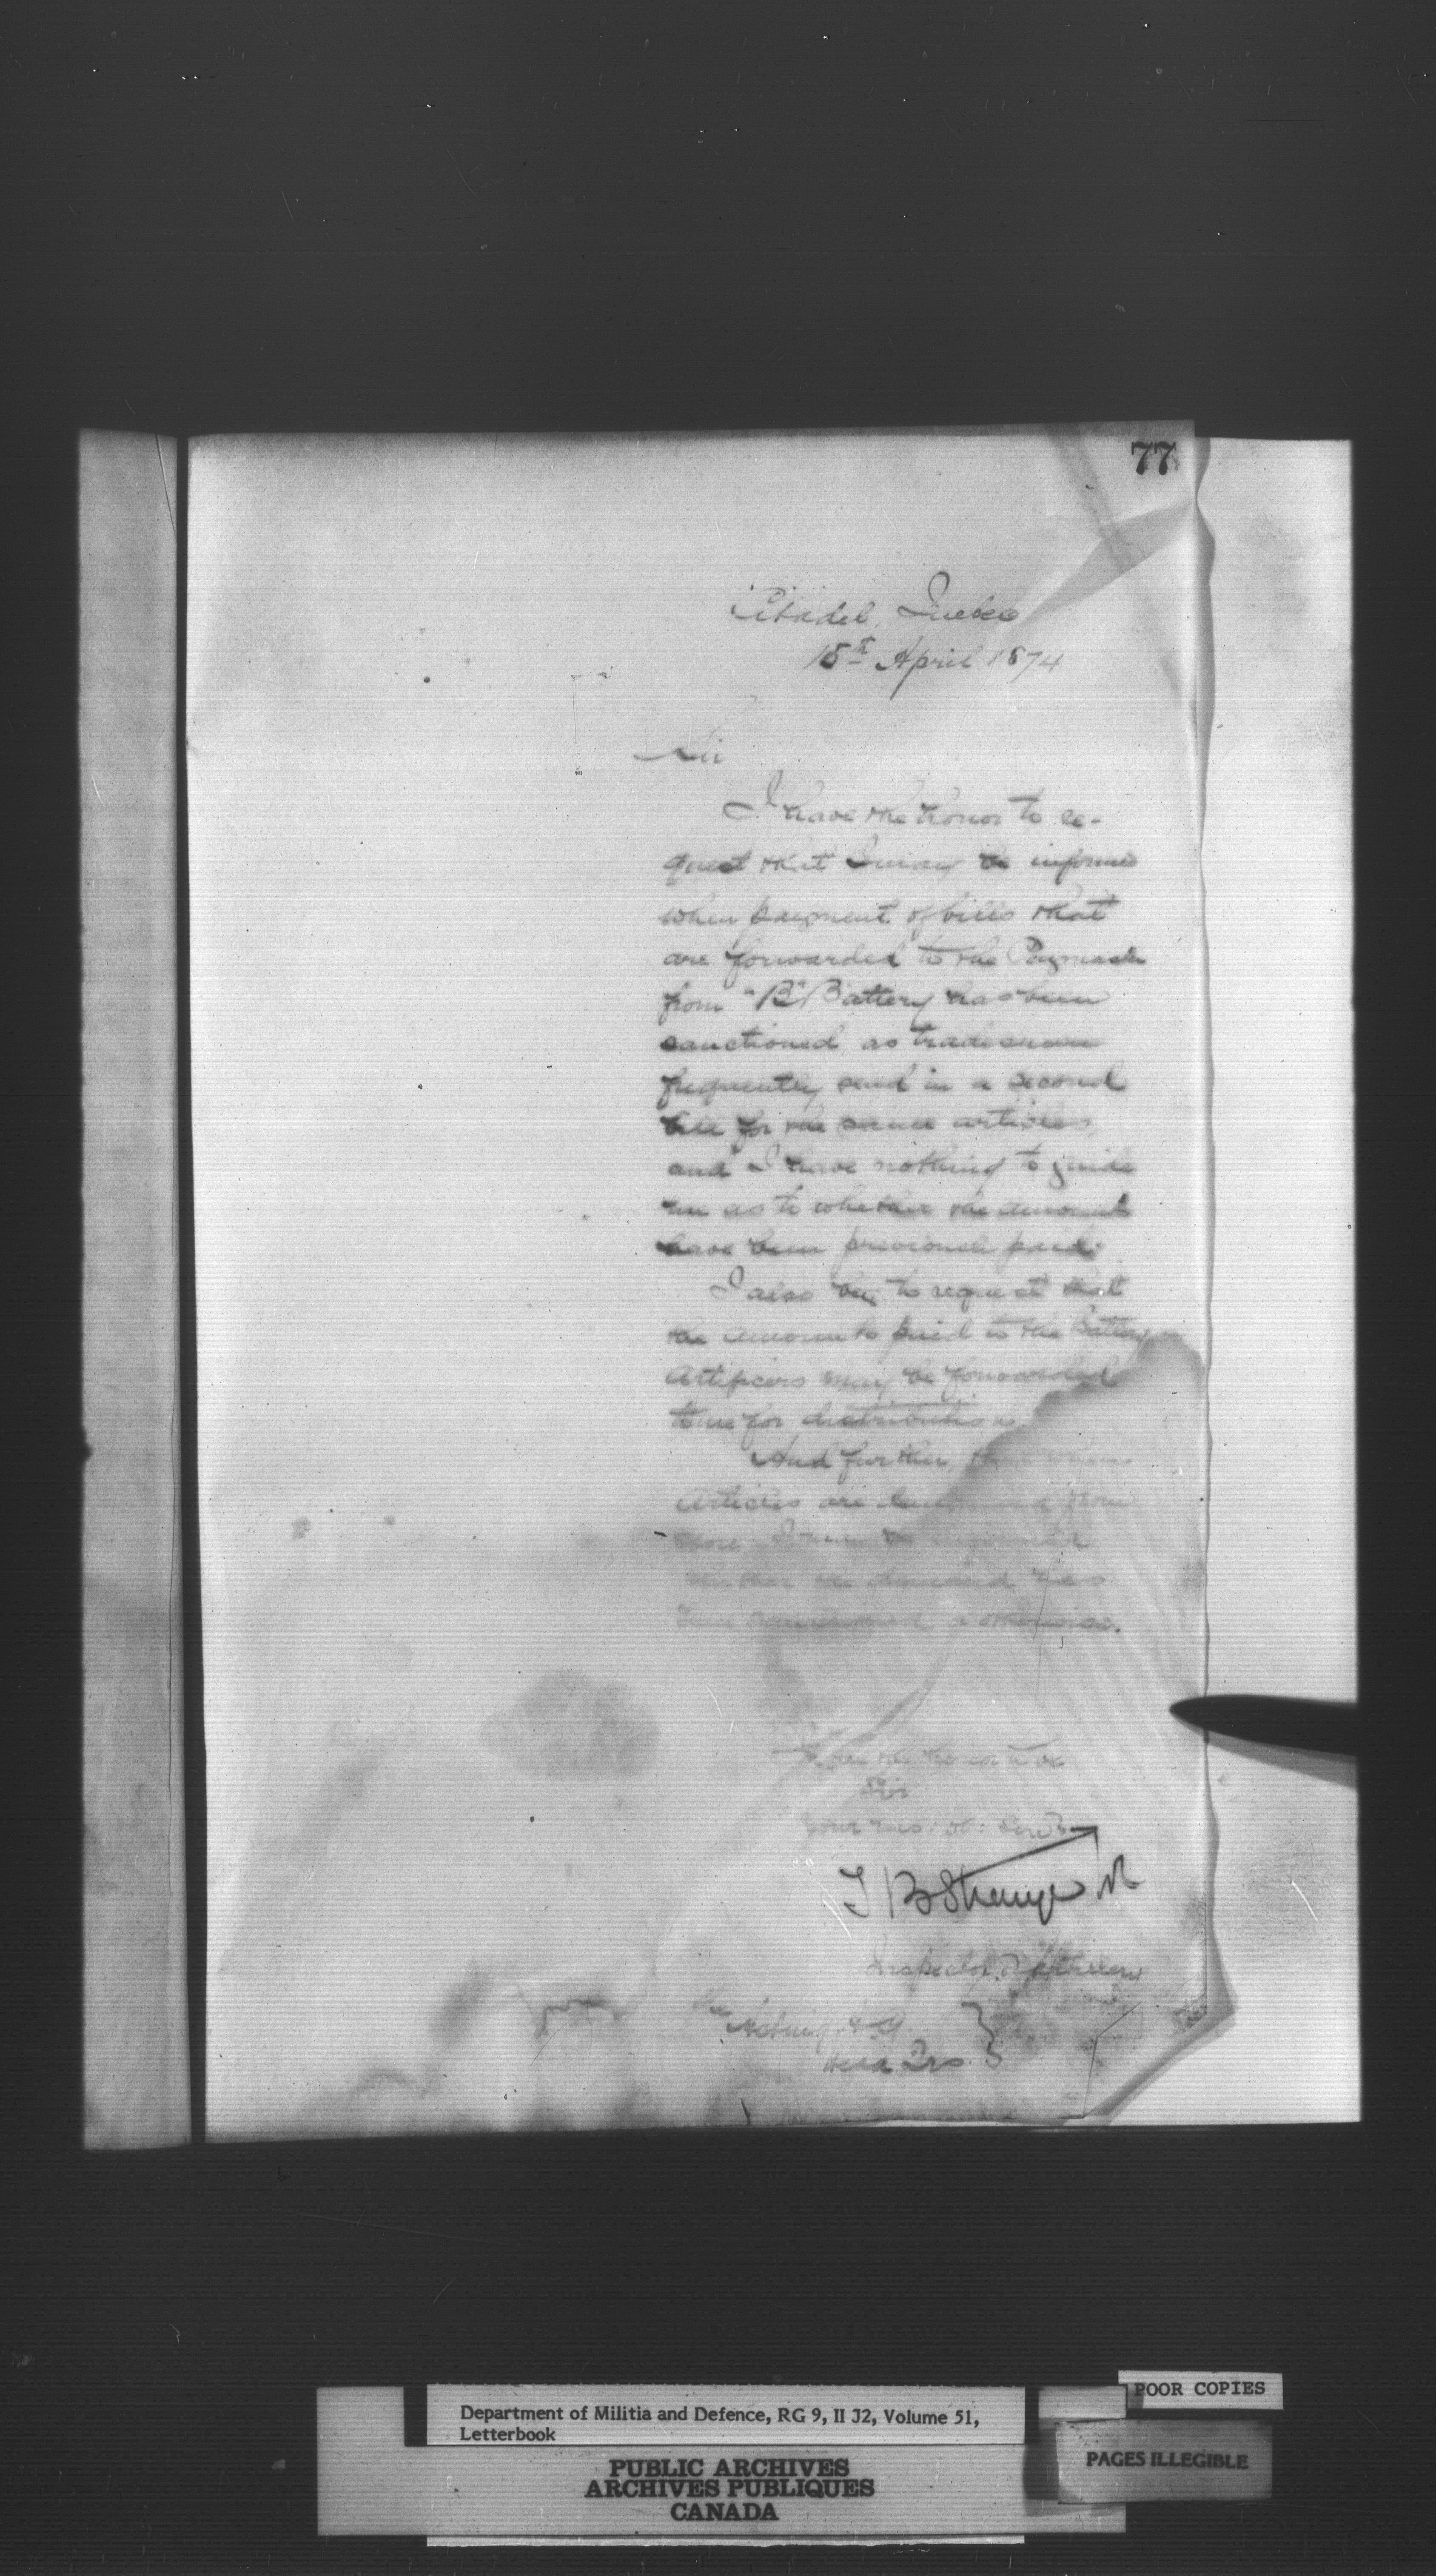 77
Citadel, Quebec
15th April 1874
Sir
I have the honor to re-
quest that I may be informed
when payment of bills that
are forwarded to the Paymaster
from "B" Battery has been
sanctioned, as tradesmen
frequently send in a second
bill for the same articles,
and I have nothing to guide
me as to whether the amounts
have been previously paid.
I also beg to request that
the amounts paid to the Battery
Artificers may be forwarded
to me for distribution.
And further, that when
Articles are demanded from
Store I may be informed
whether the demand has
been sanctioned or otherwise.
I have the honor to be
Sir
Your mos: ob: Servt
T B Strange
Inspector of Artillery
The Acting A G
Head Qrs
POOR COPIES
Department of Militia and Defence, RG 9, II J2, Volume 51,
Letterbook
PAGES ILLEGIBLE
PUBLIC ARCHIVES
ARCHIVES PUBLIQUES
CANADA